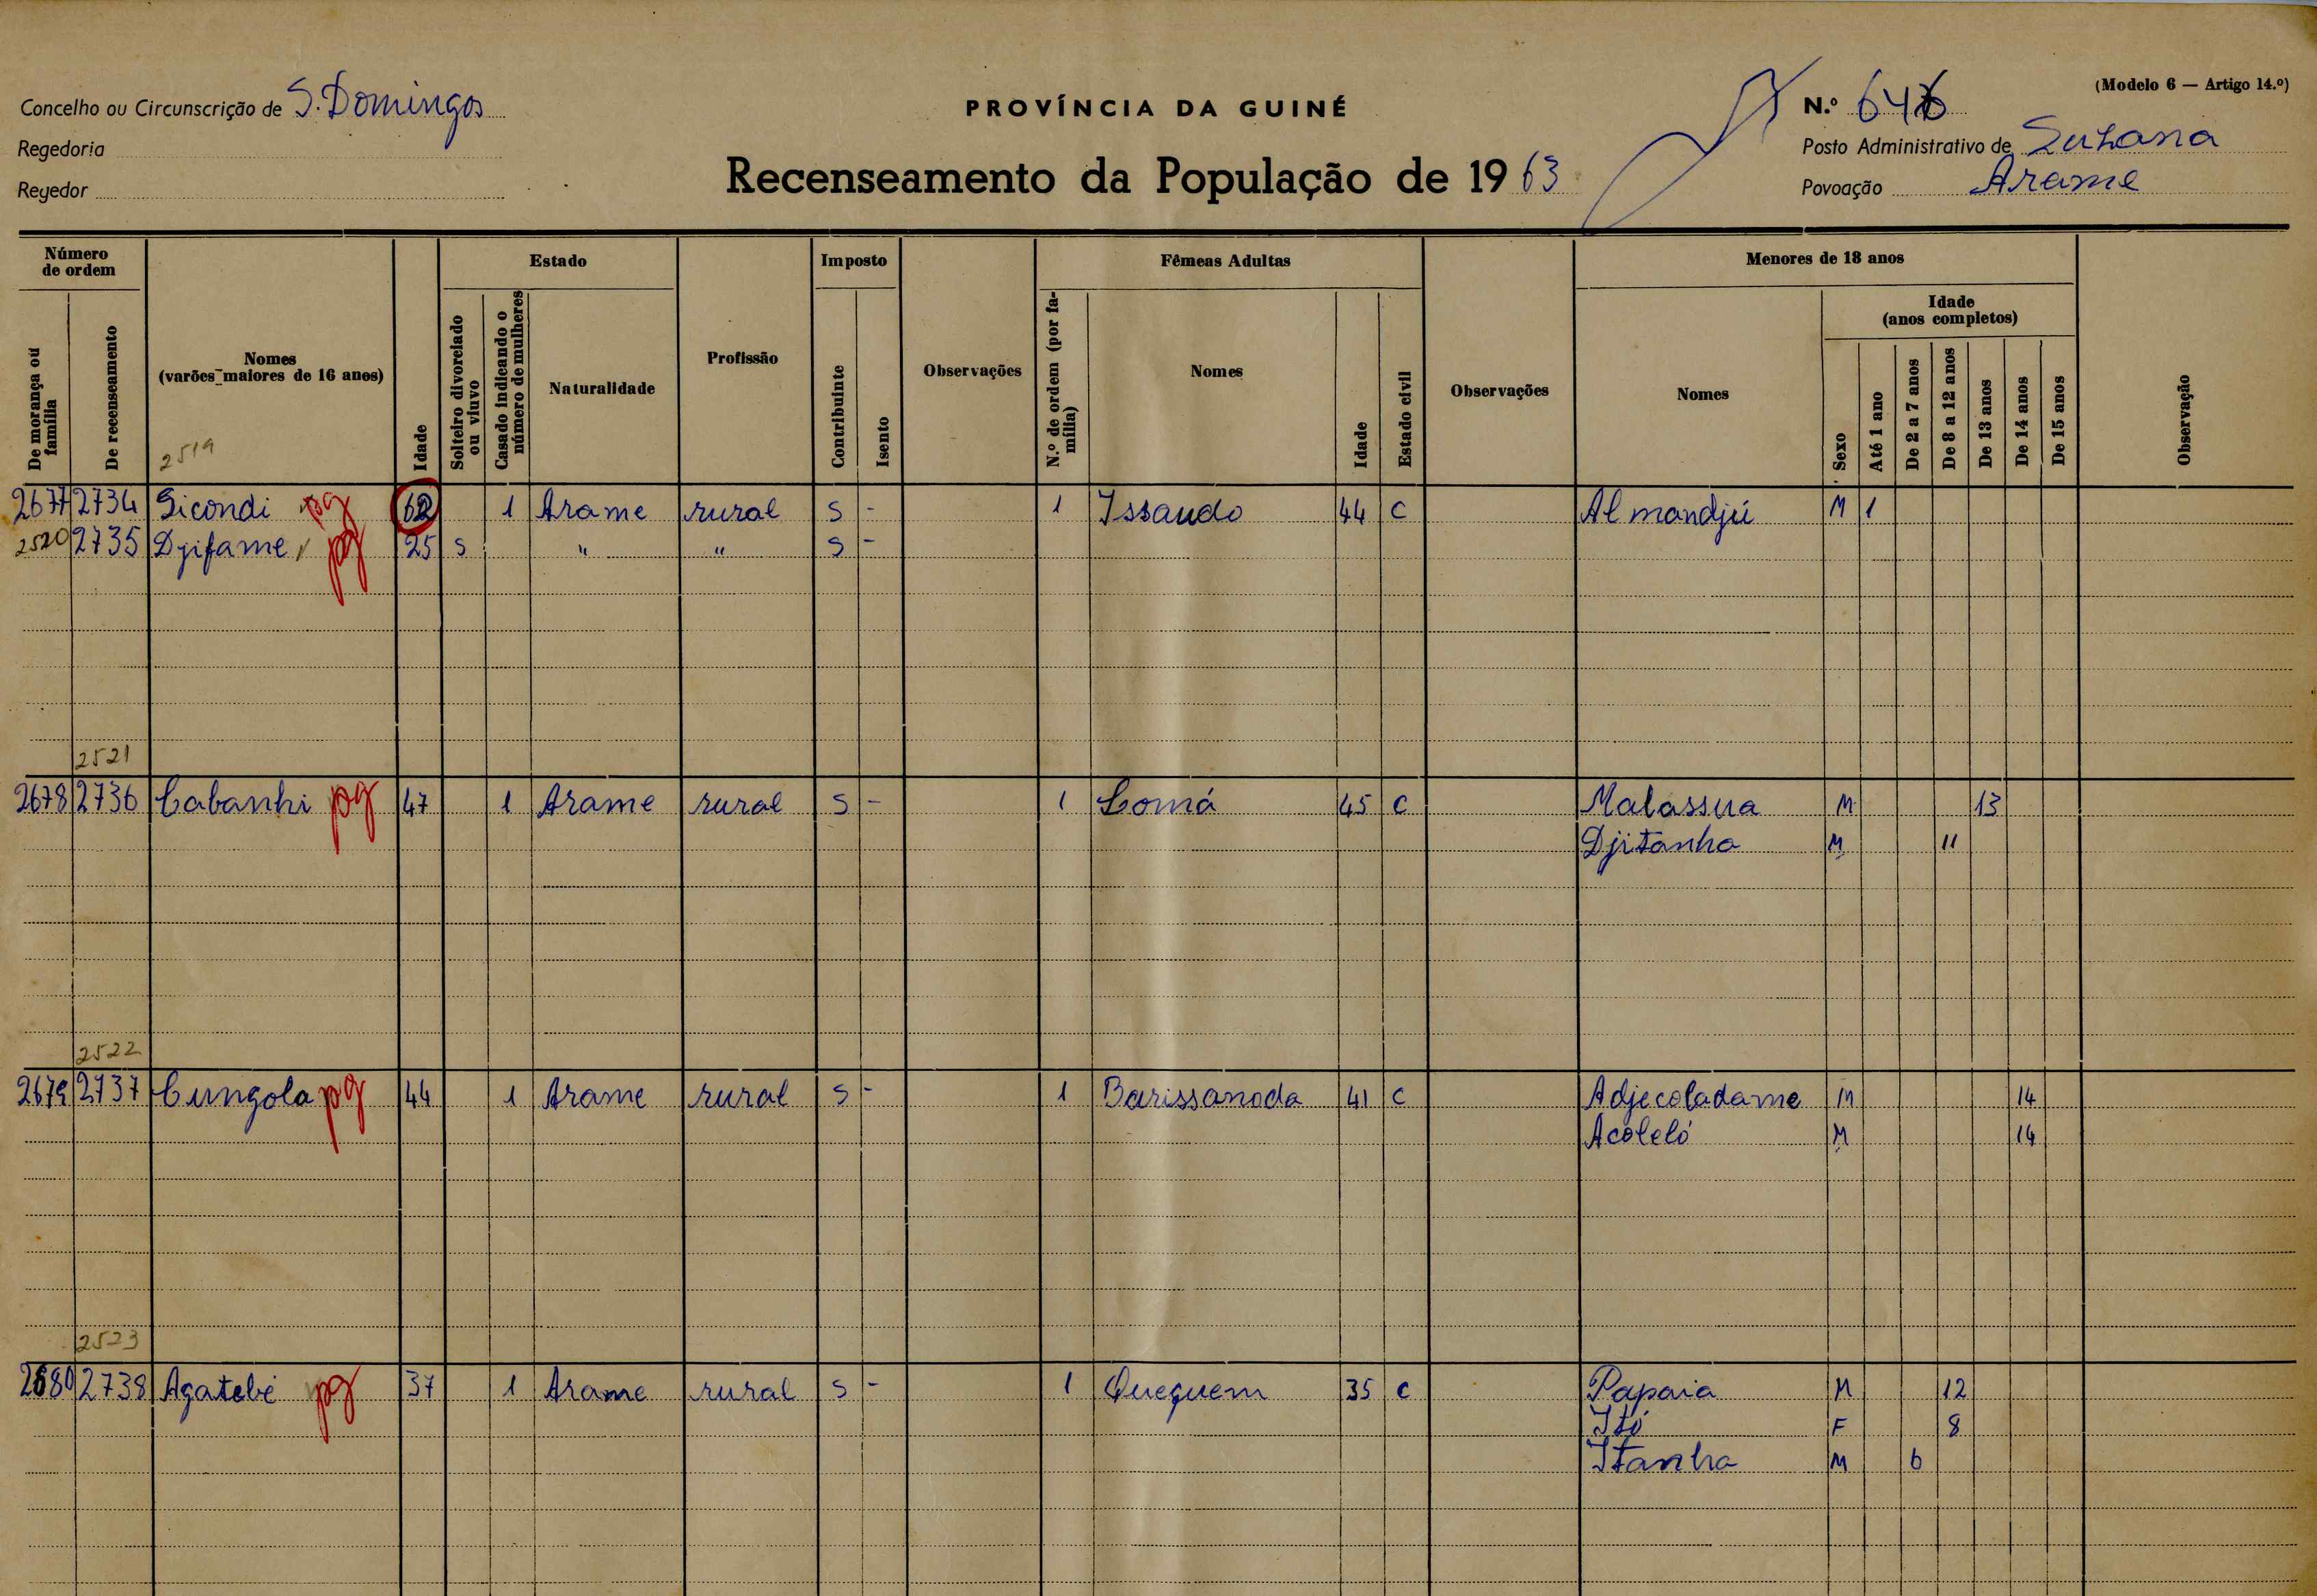 (Modelo 6 — Artigo 14.º)
Concelho ou Circunscrição de S. Domingos
PROVÍNCIA DA GUINÉ
N.º 646
Regedoria
Posto Administrativo de Suzana
Regedor
Recenseamento da População de 1963
Povoação Arame
Número de ordem
De morança ou família
De recenseamento
Nomes
(varões maiores de 16 anos)
2519
Idade
Estado
Solteiro divorciado ou viuvo
Casado indicando o número de mulheres
Naturalidade
Profissão
Imposto
Contribuinte
Isento
Observações
Fêmeas Adultas
N.º de ordem (por família)
Nomes
Idade
Estado civil
Observações
Menores de 18 anos
Nomes
Sexo
Idade
(anos completos)
Até 1 ano
De 2 a 7 anos
De 8 a 12 anos
De 13 anos
De 14 anos
De 15 anos
Observação
2677 2734 Sicondi pg 62 1 Arame rural S - 1 Issaudo 44 C Almandjú M 1
2520 2735 Djifame pg 25 S " " S -
2521
2678 2736 Cabanhi pg 47 1 Arame rural S - 1 Comá 45 C Malassua M 13
Djitanha M 11
2522
2679 2737 Cungola pg 44 1 Arame rural S - 1 Barissanoda 41 C Adjecoladame M 14
Acoleló M 14
2523
2680 2738 Agatebé pg 37 1 Arame rural S - 1 Queguem 35 C Papaia M 12
Itó F 8
Itanha M 6